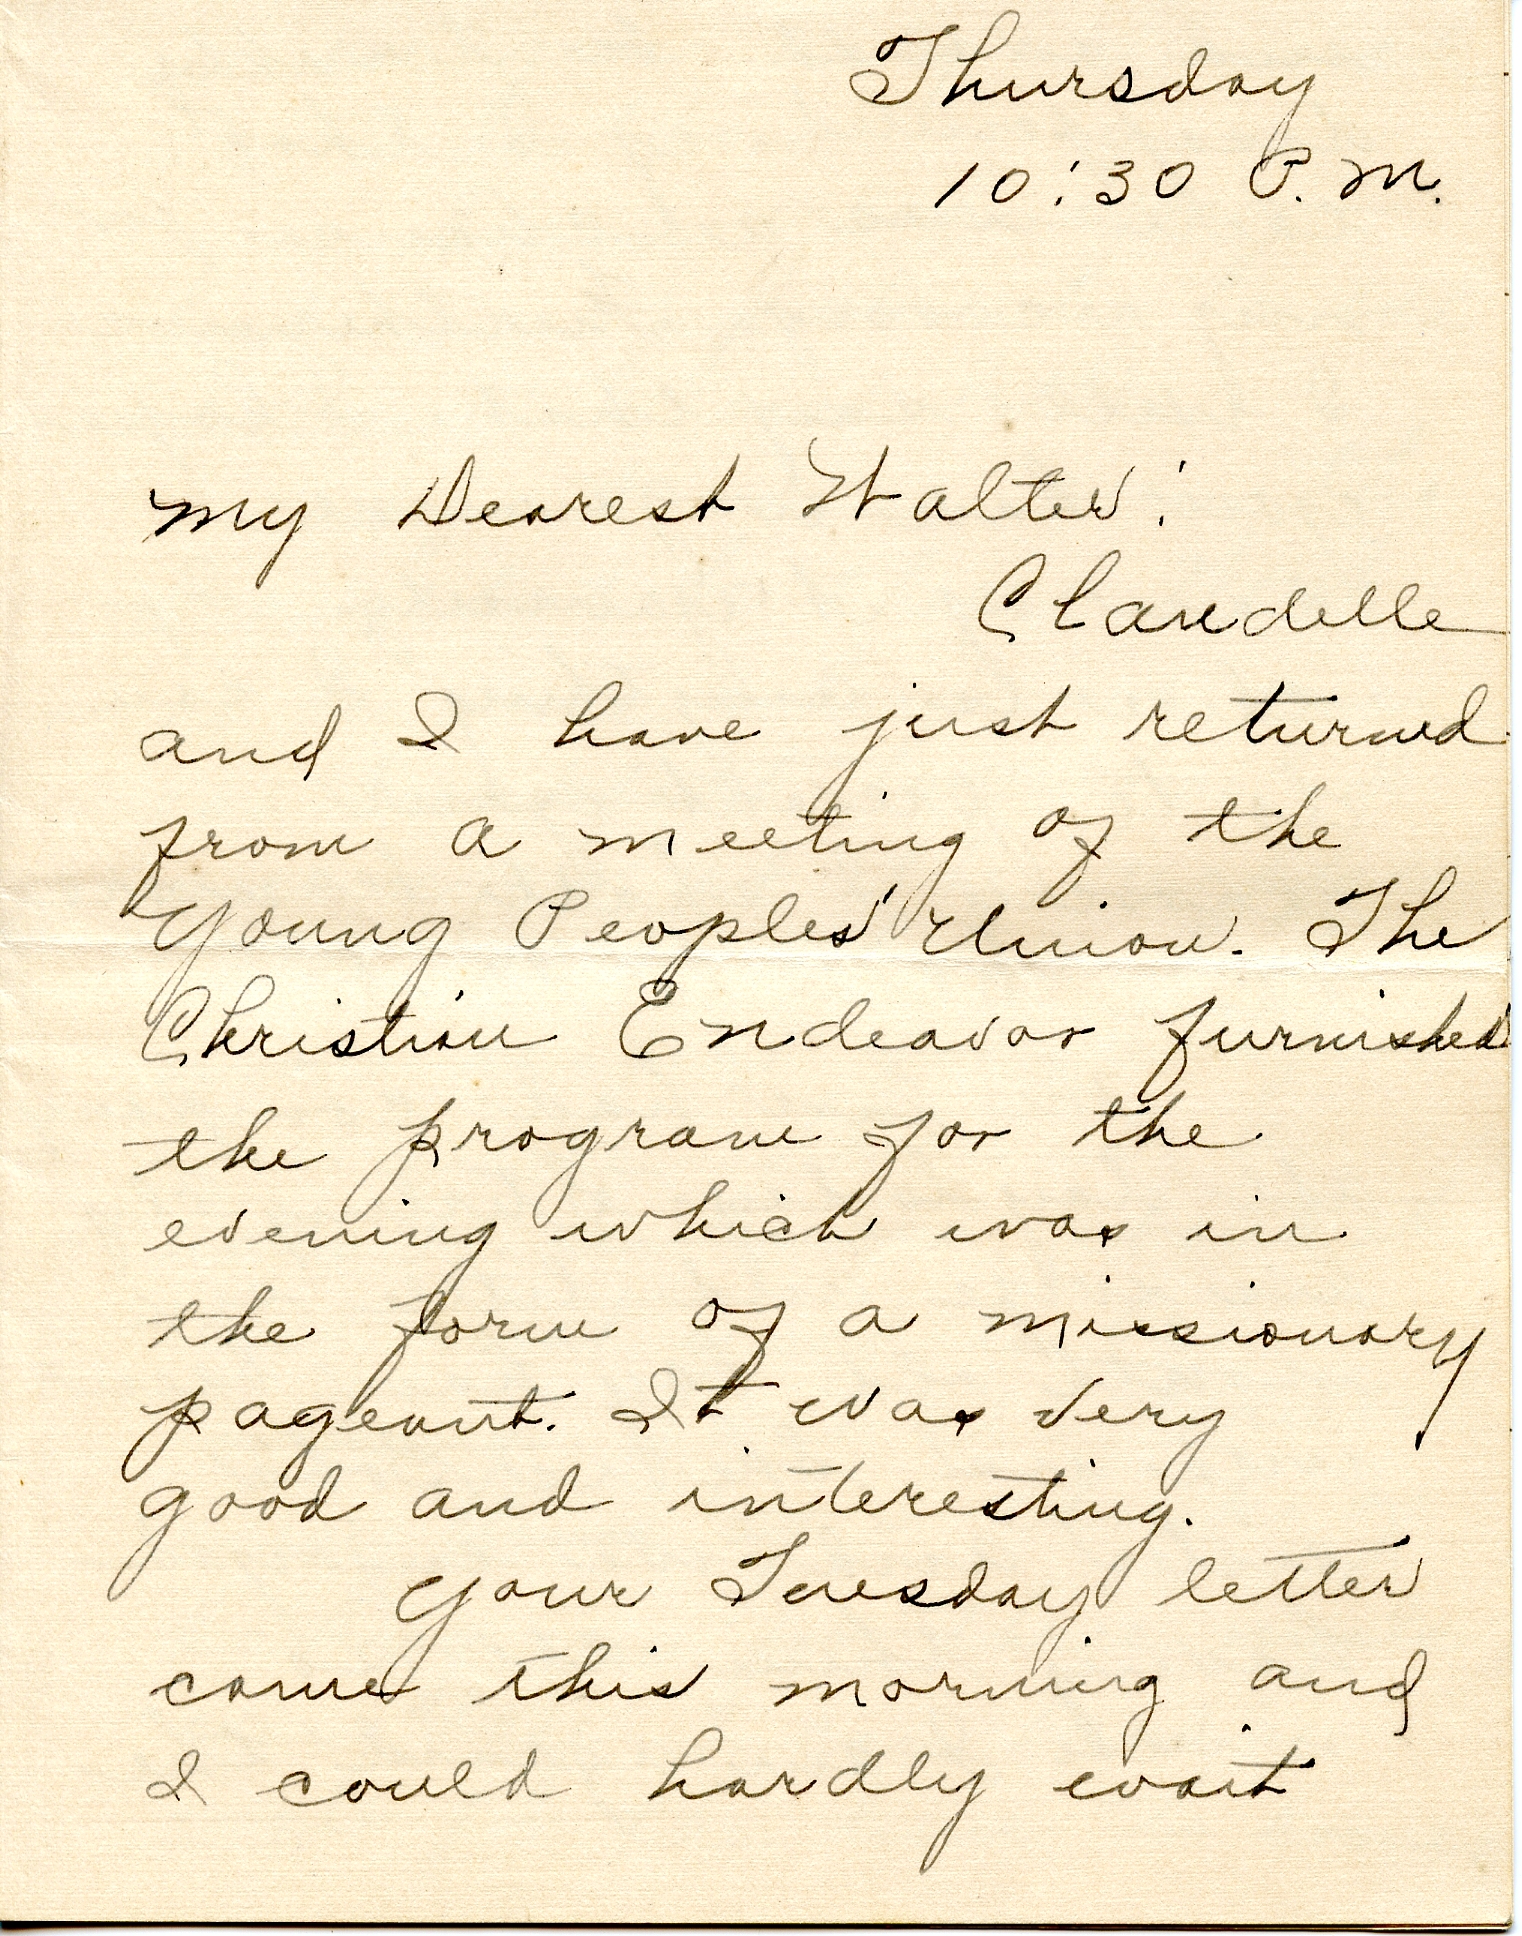 Thursday
10:30 P.M.
My Dearest Walter:
Claudelle
and I have just returned
from a meeting of the
Young Peoples' Union. The
Christian Endeavor furnished
the program for the
evening which was in
the form of a missionary
pageant. It was very
good and interesting.
Your Tuesday letter
came this morning and
I could hardly wait